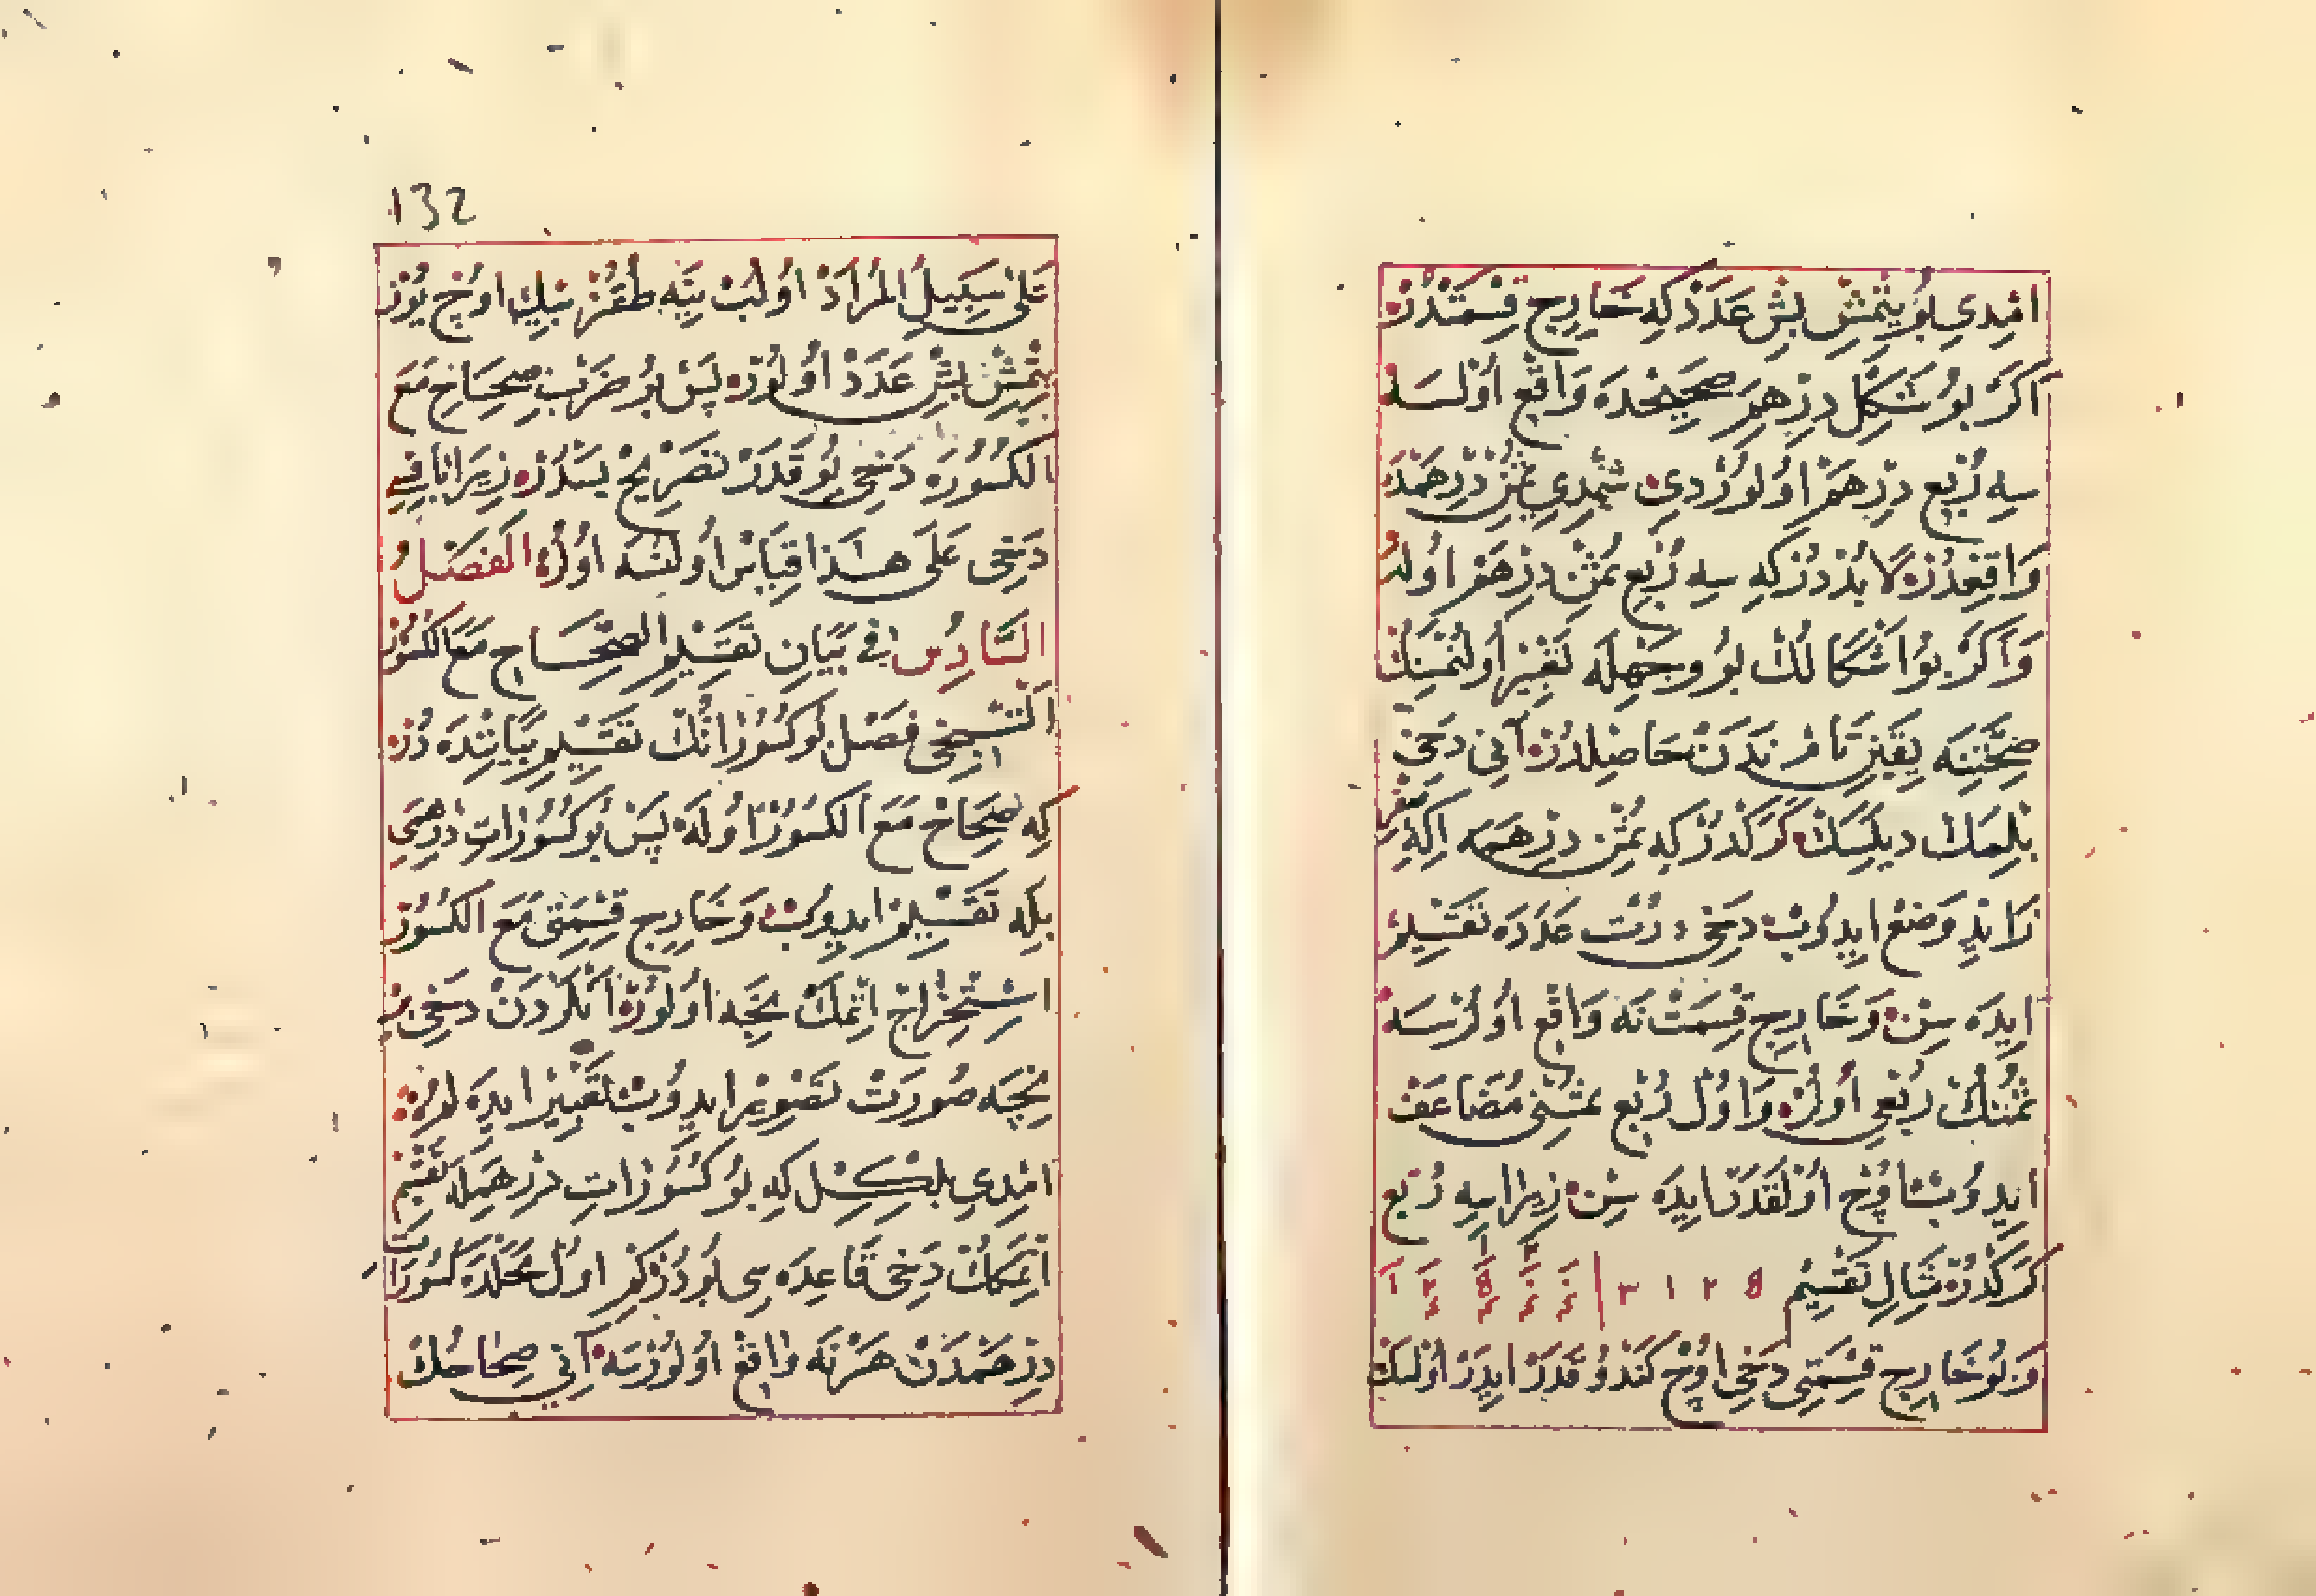 امدی بو یتمش بش عدددرکه خارج قسمتدر
اکر بو شکل درهم صحیحده واقع اولسه
سه ربع درهم اولوردی شمدی ثمن درهمده
واقعدر لا بددرکه سه ربع ثمن درهم اولر
واکر بو اشکالك بو وجهله تغییر اولنمسنك
صحتنه یقین تام ندن حاصلدر آنی دخی
بلمك دیلرسك کرکدرکه ثمن درهمه اکه
زاند وضع ایدوب دخی درت عدده تقسیم
ایده سن وخارج قسمت نه واقع اولرسه
ثمننك ربعی اولر واول ربع ثمنی مضاعف
ایدوب اوچ اولقدر ایده سن زیرا سه ربع
کرکدر مثال تقسیم
وبو خارج قسمتی دخی اوچ کندو قدر ایدر اولسك
132
علی سبیل المراد اولب ینه طقز بیك اوچ یوز
یتمش بش عدد اولور پس بو ضرب صحاح مع
الکسورده دخی بو قدر تصریح بسدر زیرا باقی
دخی علی هذا قیاس اولنسه اولر الفصل
السادس فی بیان تقسیم الصحاح مع الکسور
التنجی فصل بو کسوراتك تقسیم بیاننده در
که صحاح مع الکسور اوله پس بو کسورات درهمی
بله تقسیم ایدوب وخارج قسمتی مع الکسور
استخراج اتمك نجه اولور آنلردن دخی بر
نجه صورت تصویر ایدوب تعبیر ایده لم
امدی بلکل که بو کسورات درهمله تقسیم
اتمکك دخی قاعده سی بودرکم اول محلده کسورات
درهمدن هر نه واقع اولورسه آنی صحاحك